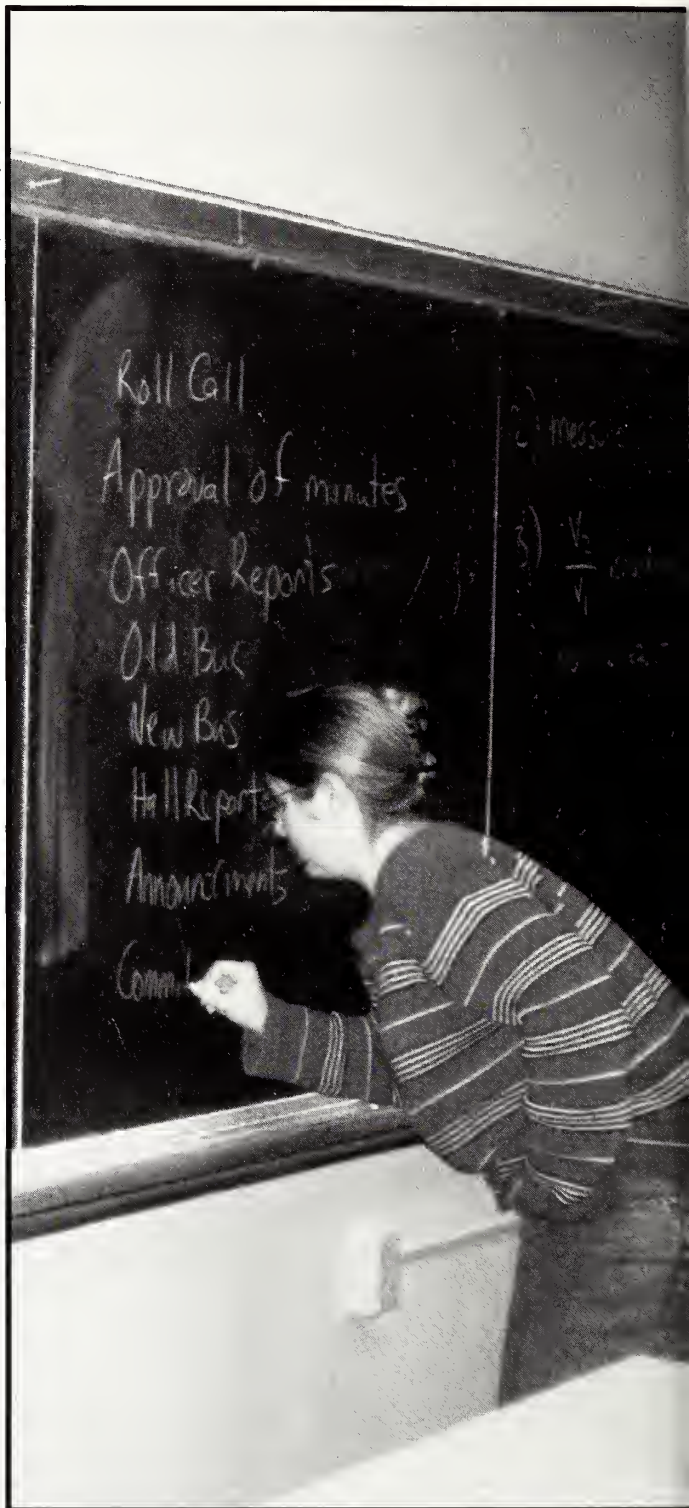 Roll Call
Approval of minutes
Officer Reports
Old Bus
New Bus
Hall Reports
Announcments
2)
3) V2
V1